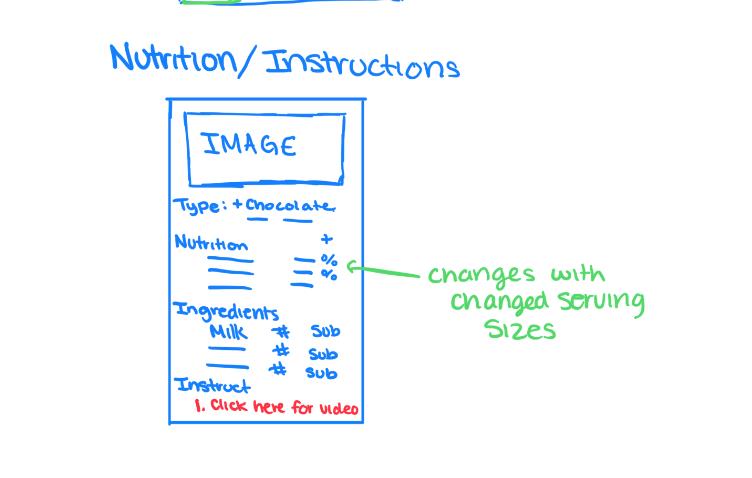 Nutrition/Instructions
IMAGE
Type: + Chocolate
Nutrition +
%
%
changes with
changed serving
sizes
Ingredients
Milk # Sub
# Sub
# Sub
Instruct
1. Click here for video